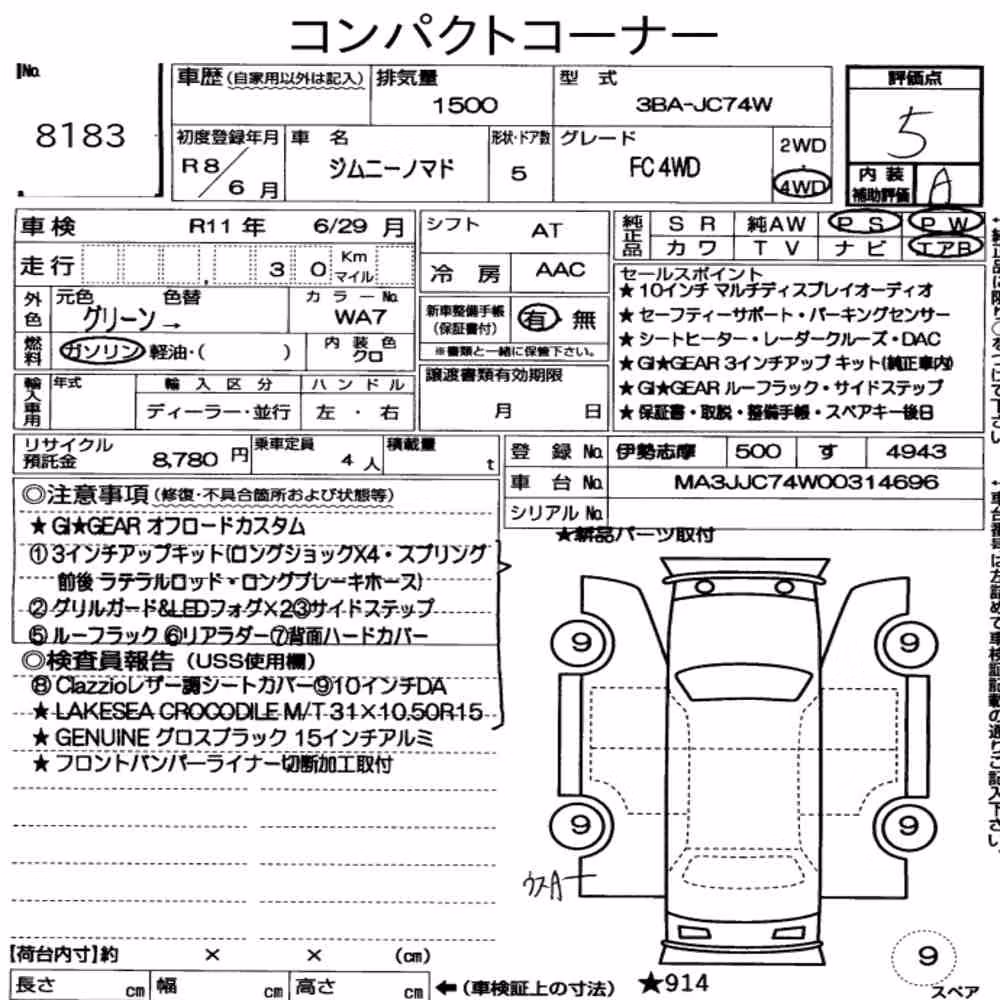 コンパクトコーナー
No.
8183
車歴 (自家用以外は記入)
排気量
1500
型 式
3BA-JC74W
評価点
5
初度登録年月
R8/6月
車 名
ジムニーノマド
形状・ドア数
5
グレード
FC 4WD
2WD
・
4WD
内装補助評価
A
車検 R11年 6/29月
シフト AT
純正品
SR 純AW PS PW
カワ TV ナビ エアB
走行 30 Km マイル
冷房 AAC
外色
元色 色替
グリーン→
カラーNo.
WA7
新車整備手帳
(保証書付)
有・無
※書類と一緒に保管下さい。
燃料
ガソリン 軽油・( )
内装色
クロ
セールスポイント
★10インチ マルチディスプレイオーディオ
★セーフティーサポート・パーキングセンサー
★シートヒーター・レーダークルーズ・DAC
★GI★GEAR 3インチアップ キット(純正車内)
★GI★GEAR ルーフラック・サイドステップ
★保証書・取説・整備手帳・スペアキー後日
輸入車用
年式
輸入区分
ディーラー・並行
ハンドル
左・右
譲渡書類有効期限
月 日
リサイクル預託金 8,780円
乗車定員 4人
積載量 t
登録No. 伊勢志摩 500 す 4943
車台No. MA3JJC74W00314696
シリアルNo.
◎注意事項 (修復・不具合箇所および状態等)
★ GI★GEAR オフロードカスタム
① 3インチアップキット(ロングショックX4・スプリング
前後 ラテラルロッド・ロングブレーキホース)
② グリルガード&LEDフォグ×2③サイドステップ
⑤ ルーフラック ⑥リアラダー⑦背面ハードカバー
◎検査員報告 (USS使用欄)
⑧ Clazzioレザー調シートカバー⑨10インチDA
★ LAKESEA CROCODILE M/T 31×10.50R15
★ GENUINE グロスブラック 15インチアルミ
★ フロントバンパーライナー切断加工取付
★新品パーツ取付
9
9
9
9
ウスA
9
スペア
【荷台内寸】約 × × (cm)
長さ cm 幅 cm 高さ cm
←(車検証上の寸法) ★914